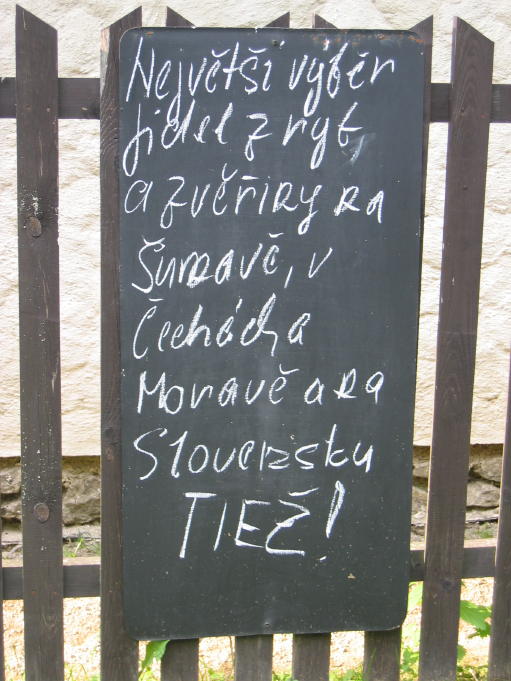 Největší výběr
jídel z ryb
a zvěřiny na
Šumavě, v
Čechách a
Moravě a na
Slovensku
TIEŽ!